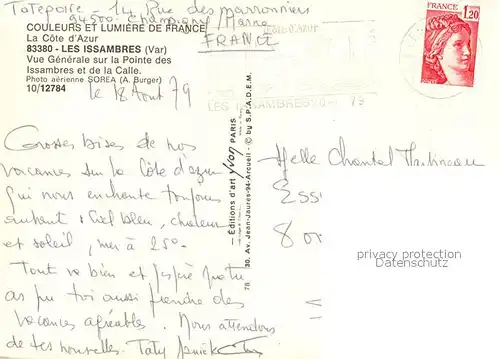 Tatepoire - 14 Rue des marronniers
94500 - Champigny / Marne
FRANCE
COULEURS ET LUMIÈRE DE FRANCE
La Côte d'Azur
83380 - LES ISSAMBRES (Var)
Vue Générale sur la Pointe des
Issambres et de la Calle.
Photo aérienne SOREA (A. Burger)
10/12784
le 18 Aout 79
Grosses bises de nos
vacances sur la Côte d'azur
qui nous enchante toujours
autant : Ciel bleu, chaleur
et soleil, mer à 25°.
Tout va bien et j'espère que tu
as pu toi aussi prendre des
vacances agréables. Nous attendons
de tes nouvelles. Taty
78 - Éditions d'art Yvon PARIS
30, Av. Jean-Jaurès-94-Arcueil - © by S.P.A.D.E.M.
CÔTE D'AZUR
LES ISSAMBRES
79
FRANCE
1,20
Melle Chantal
Ess
8
privacy protection
Datenschutz